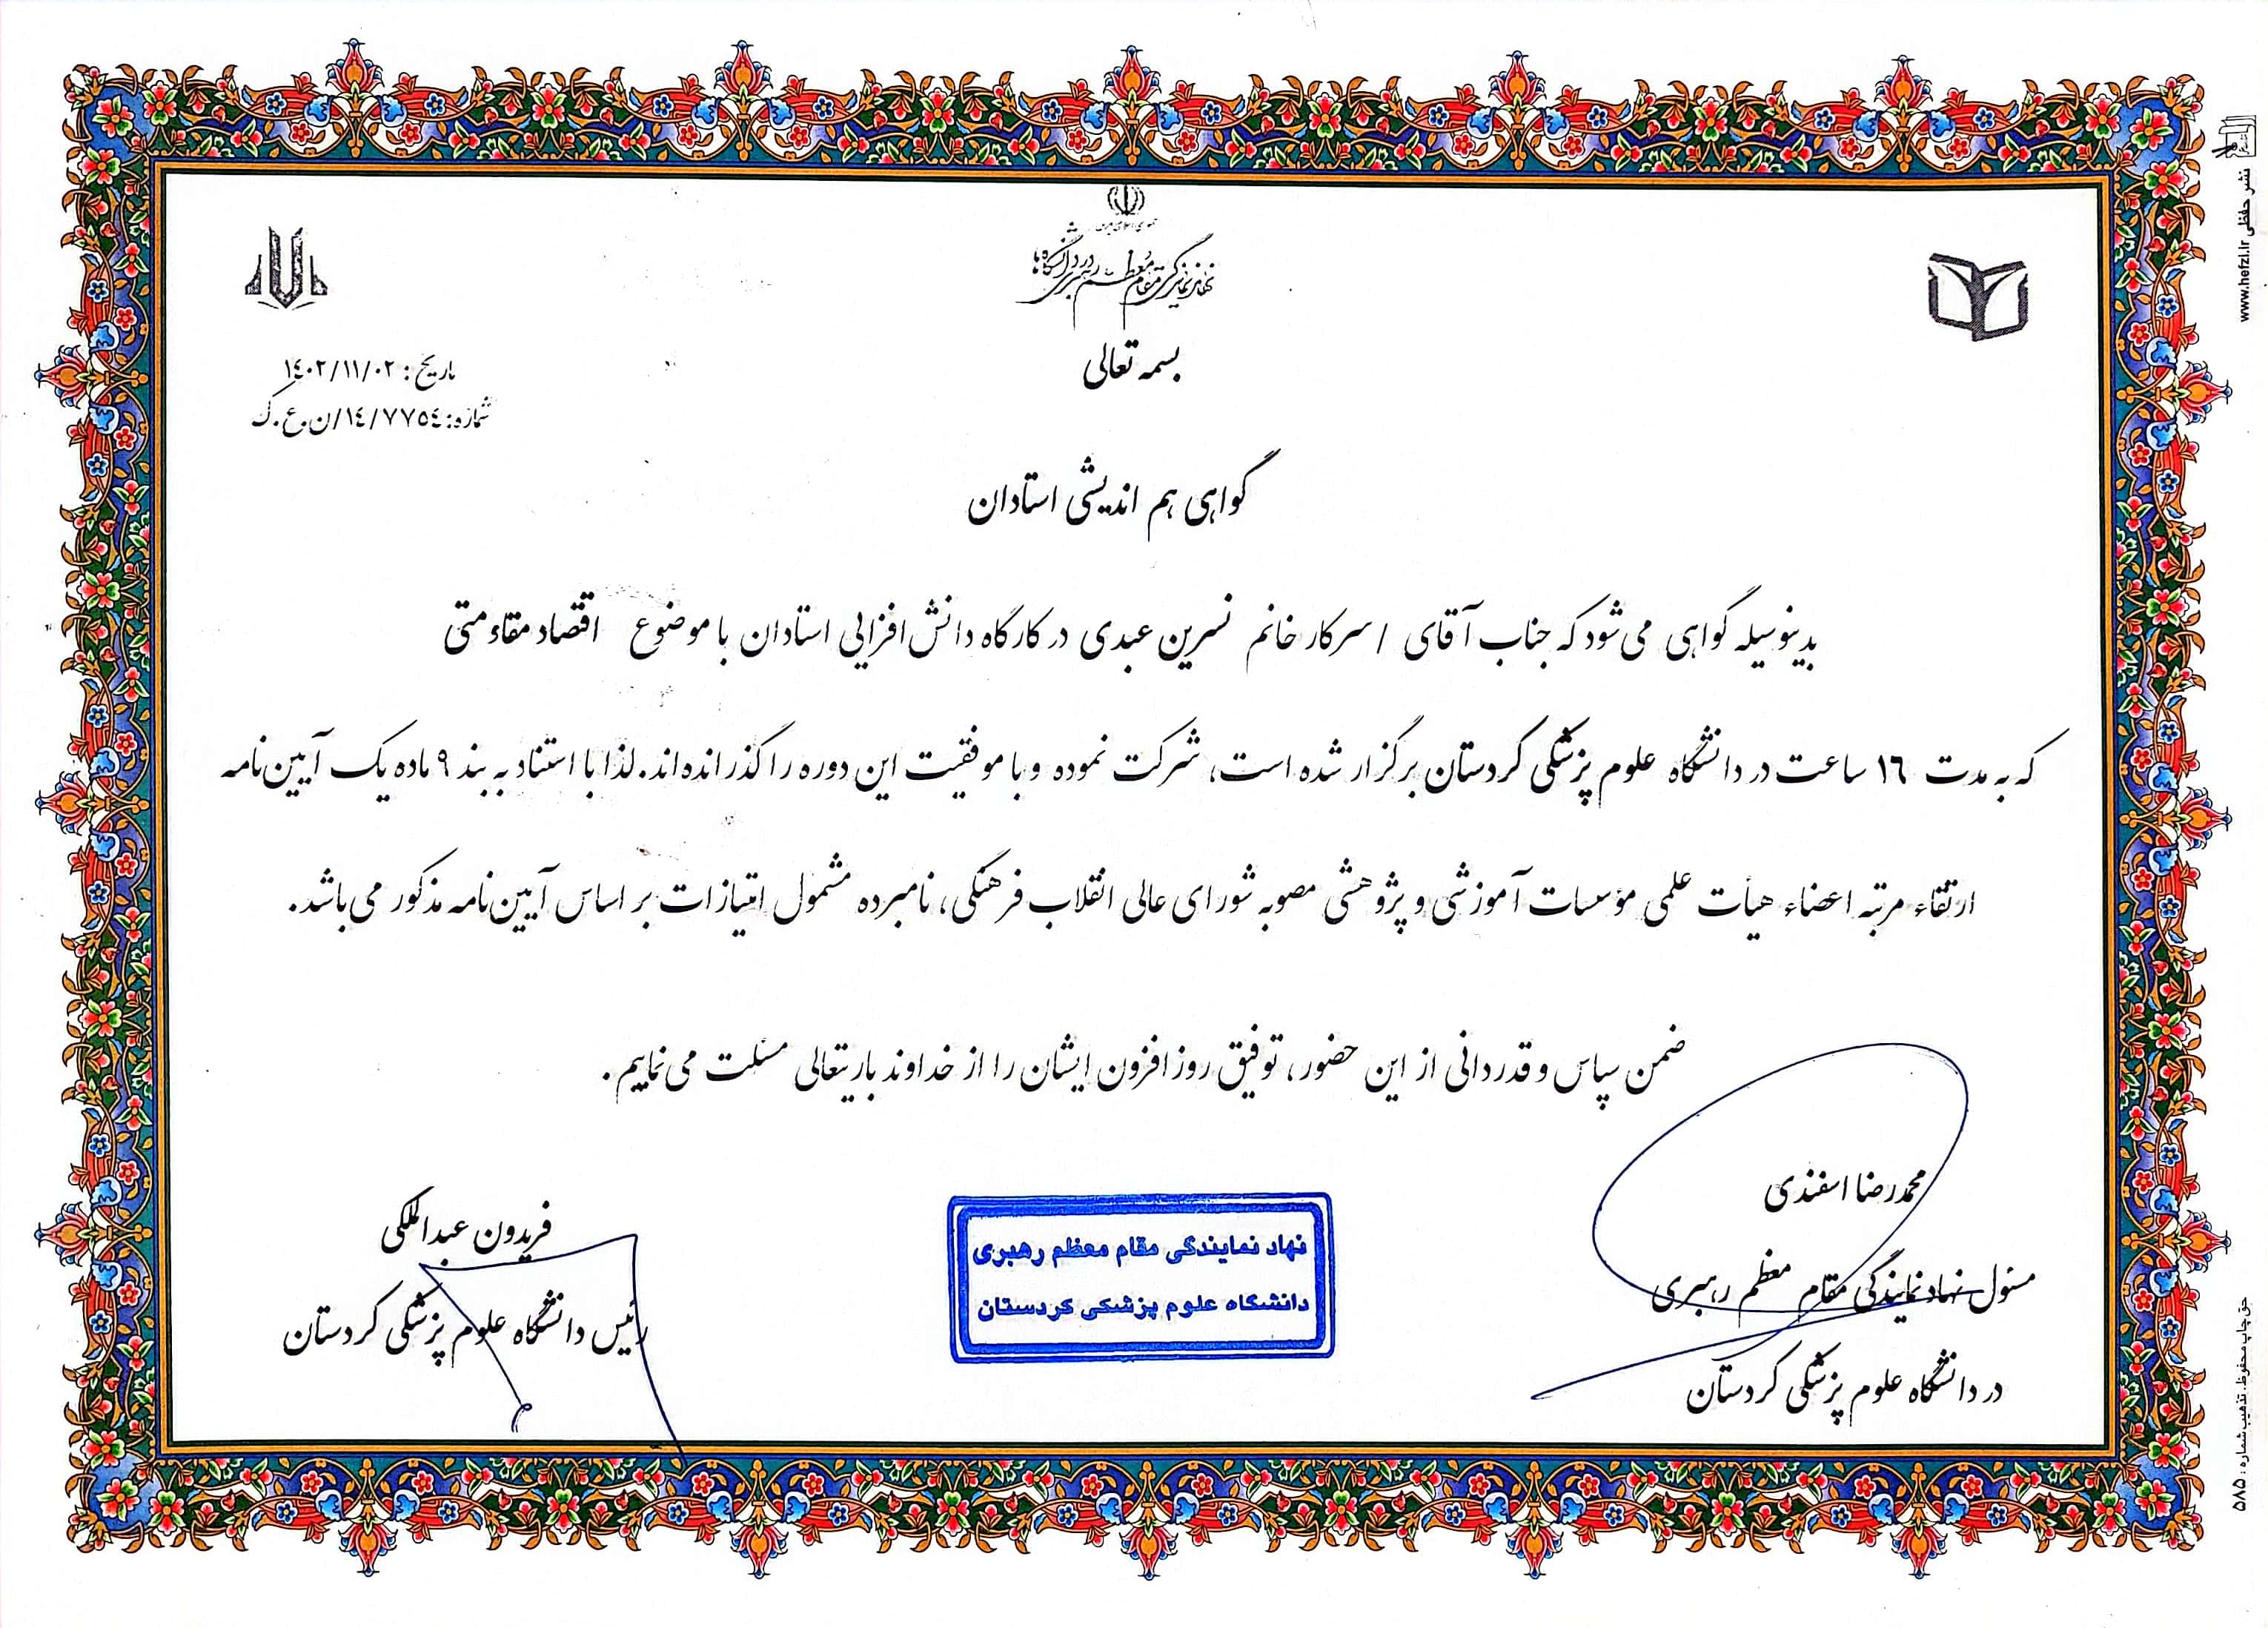 جمهوری اسلامی ایران
نهاد نمایندگی مقام معظم رهبری در دانشگاه‌ها
بسمه تعالی
تاریخ: ١٤٠٢/١١/٠٢
شماره: ١٤/٧٧٥٤/ن.ع.ک
گواهی هم اندیشی استادان
بدینوسیله گواهی می‌شود که جناب آقای / سرکار خانم نسرین عبدی در کارگاه دانش افزایی استادان با موضوع اقتصاد مقاومتی
که به مدت ١٦ ساعت در دانشگاه علوم پزشکی کردستان برگزار شده است، شرکت نموده و با موفقیت این دوره را گذرانده‌اند. لذا با استناد به بند ٩ ماده یک آیین‌نامه
ارتقاء مرتبه اعضاء هیأت علمی مؤسسات آموزشی و پژوهشی مصوبه شورای عالی انقلاب فرهنگی، نامبرده مشمول امتیازات بر اساس آیین‌نامه مذکور می‌باشد.
ضمن سپاس و قدردانی از این حضور، توفیق روز افزون ایشان را از خداوند باریتعالی مسئلت می‌نماییم.
محمدرضا اسفندی
مسئول نهاد نمایندگی مقام معظم رهبری
در دانشگاه علوم پزشکی کردستان
نهاد نمایندگی مقام معظم رهبری
دانشگاه علوم پزشکی کردستان
فریدون عبدالملکی
رئیس دانشگاه علوم پزشکی کردستان
نشر حفظی www.hefzi.ir
حق چاپ محفوظ، تذهیب شماره: ۵۸۵